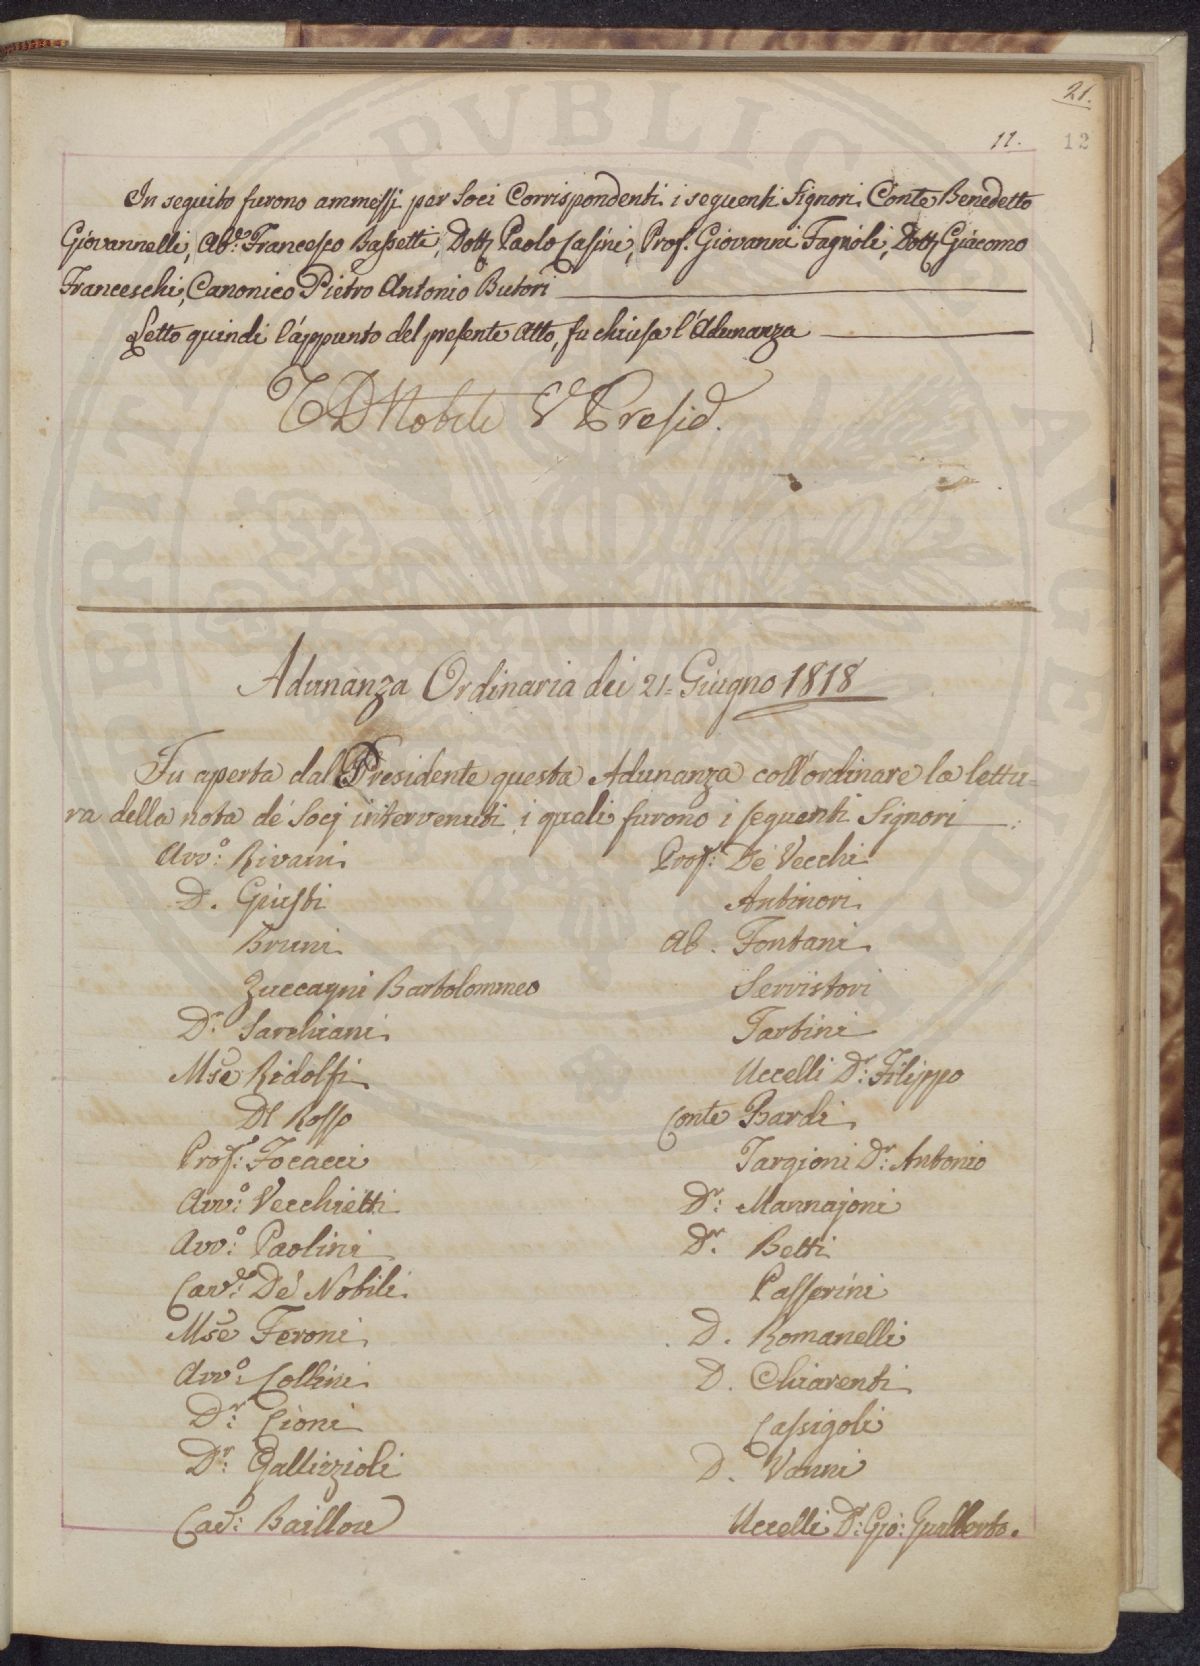 21.
11. 12
In seguito furono ammessi per Soci Corrispondenti i seguenti Signori Conte Benedetto
Giovannelli, Ab.e Francesco Bassetti, Dott. Paolo Casini, Prof. Giovanni Fagnoli, Dott. Giacomo
Franceschi, Canonico Pietro Antonio Butori
Letto quindi l'appunto del presente Atto, fu chiusa l'Adunanza
De Nobili V.e Presid.e
Adunanza Ordinaria dei 21= Giugno 1818
Fu aperta dal Presidente questa Adunanza coll'ordinare la lettu=
ra della nota de' Socj intervenuti i quali furono i seguenti Signori
Avv.o Rivani
D. Giusti
Bruni
Zuccagni Bartolommeo
D.r Sarchiani
Mse Ridolfi
Dl Rosso
Prof.e Focacci
Avv.o Vecchietti
Avv.o Paolini
Cav.e De' Nobili
Mse Feroni
Avv.o Collini
D.r Cioni
D.r Gallizioli
Cav.e Baillou
Prof: De' Vecchi
Antinori
Ab. Fontani
Serristori
Tartini
Uccelli D.r Filippo
Conte Bardi
Targioni D.r Antonio
D.r Mannajoni
D.r Betti
Passerini
D. Romanelli
D. Chiarenti
Cassigoli
D. Vanni
Uccelli D.r Gio: Gualberto.